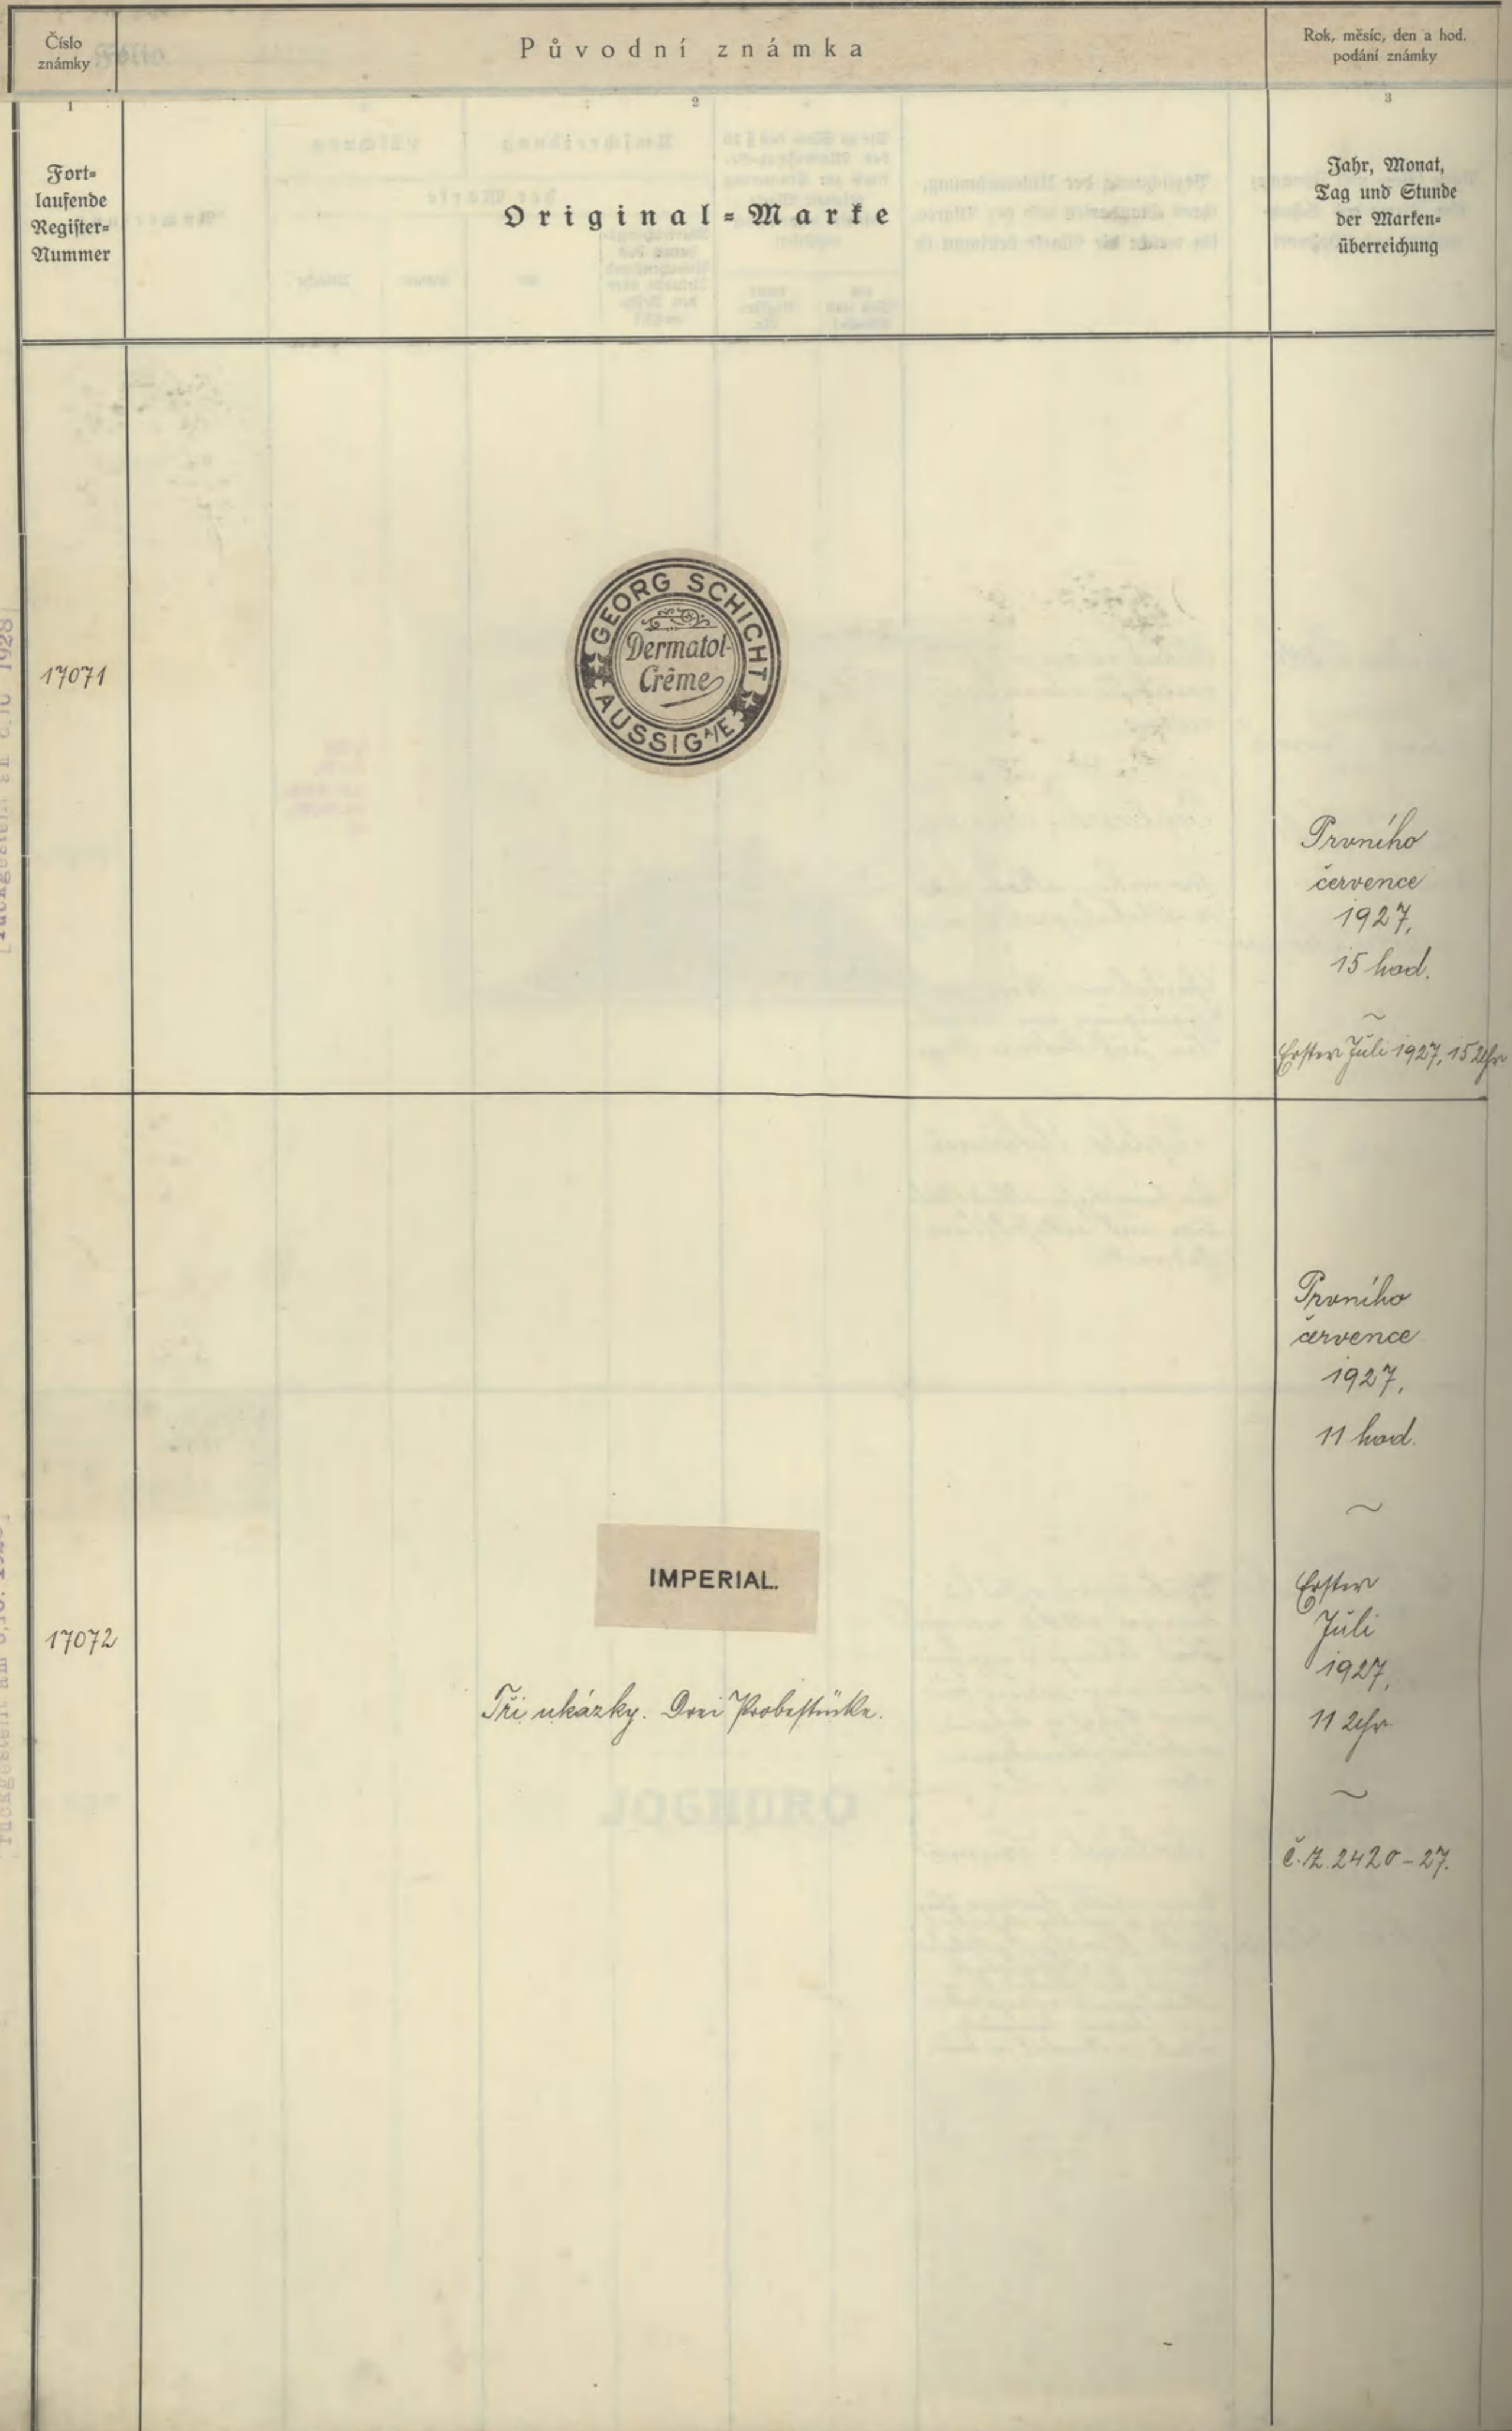 Číslo
známky
Původní známka
Rok, měsíc, den a hod.
podání známky
1
2
3
Fort-
laufende
Register-
Nummer
Original-Marke
Jahr, Monat,
Tag und Stunde
der Marken-
überreichung
17071
GEORG SCHICHT
Dermatol-
Crême
AUSSIG A/E
Prvního
července
1927,
15 hod.
~
Erster Juli 1927, 15 Uhr
17072
IMPERIAL.
Tři ukázky. Drei Probestücke.
Prvního
července
1927,
11 hod.
~
Erster
Juli
1927,
11 Uhr
~
č.z. 2420-27.